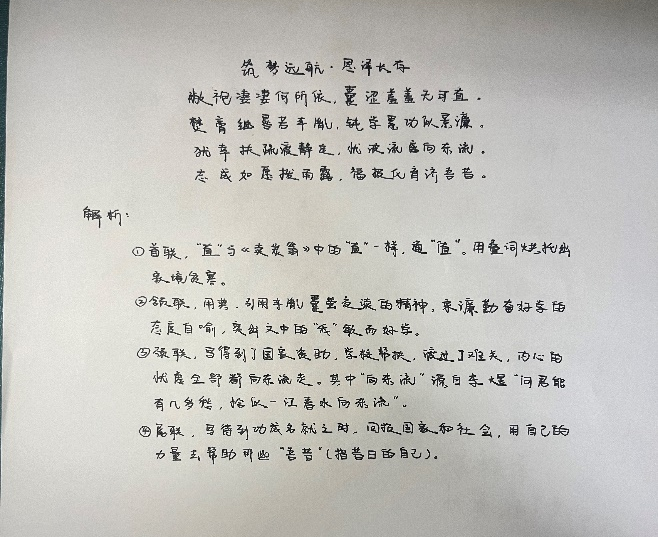 筑梦远航·恩泽长存
敝袍凄凄何所依，囊涩羞羞无可直。
焚膏继晷若车胤，钝学累功似景濂。
犹幸扶疏波静定，忧波流尽向东流。
志成如愿拨雨露，福报化育济吾昔。
解析：
①首联，“直”与《卖炭翁》中的“直”一样，通“值”。用叠词烘托出
家境贫寒。
②颔联，用典，引用车胤囊萤夜读的精神，宋濂勤奋好学的
态度自喻，突出文中的“我”敏而好学。
③颈联，写得到了国家资助，学校帮扶，渡过了难关，内心的
忧虑全部都向东流走。其中“向东流”源自李煜“问君能
有几多愁，恰似一江春水向东流”。
④尾联，写待到功成名就之时，回报国家和社会，用自己的
力量去帮助那些“吾昔”(指昔日的自己)。